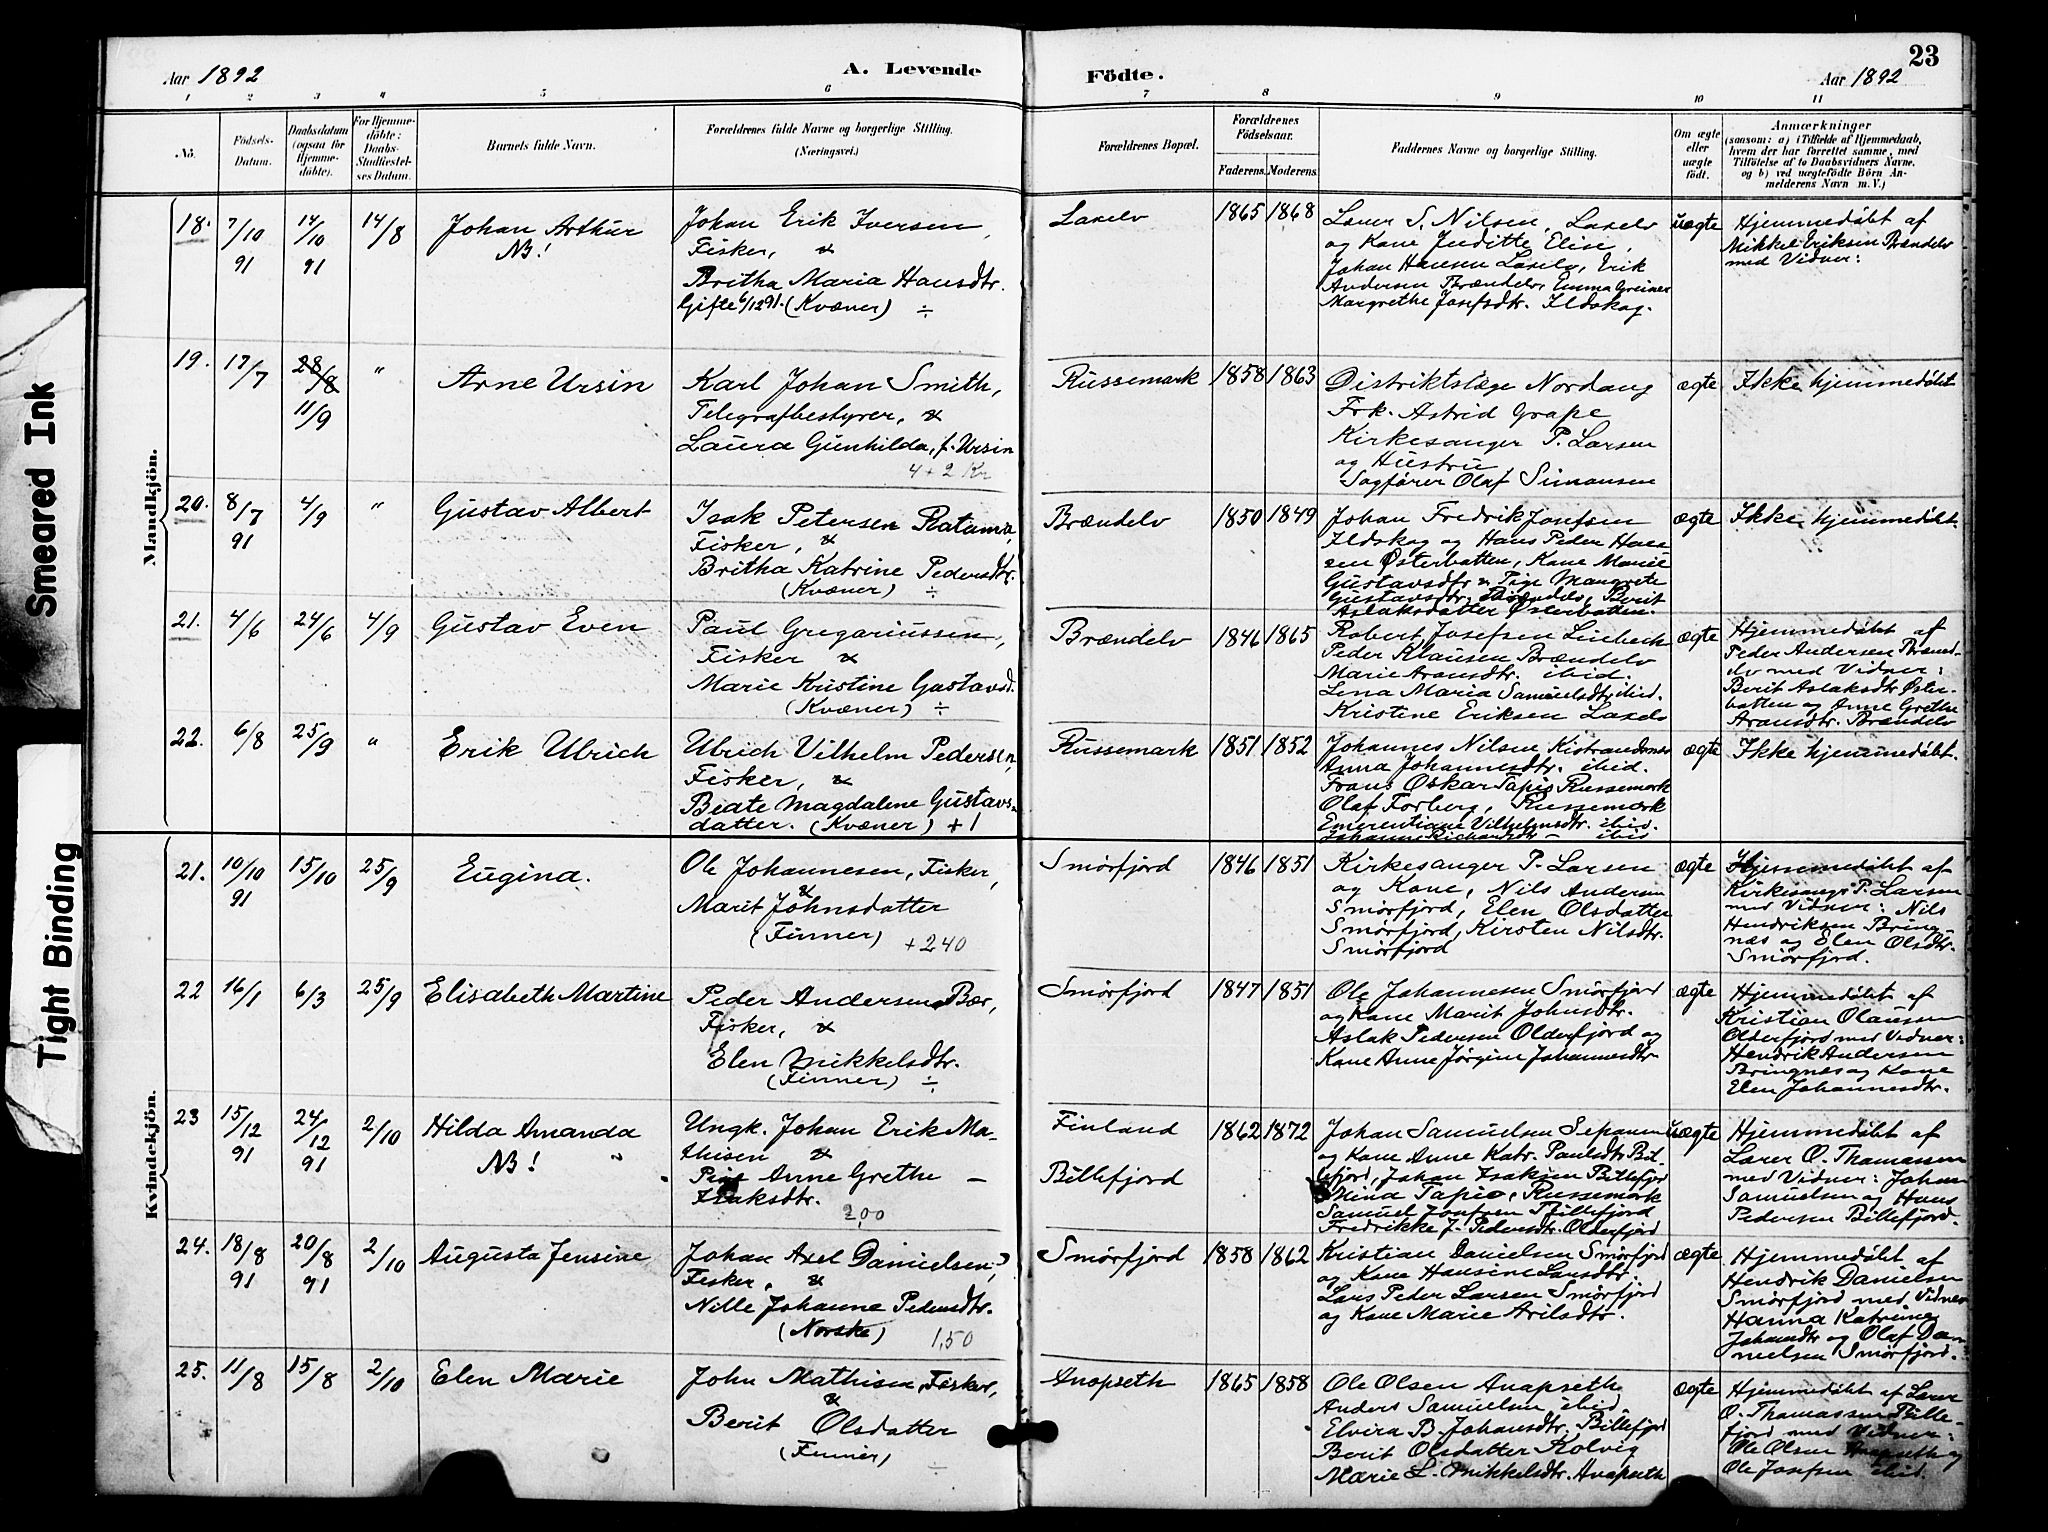 23
Aar 1892
A. Levende
Födte.
Aar 1892
1 2 3 4 5 6 7 8 9 10 11
No.
Födsels-
Datum.
Daabsdatum
(ogsaa for
Hjemme-
döbte).
For Hjemme-
döbte:
Daabs-
Stadfæstel-
ses Datum.
Barnets fulde Navn.
Forældrenes fulde Navne og borgerlige Stilling.
(Næringsvei.)
Forældrenes Bopæl.
Forældrenes
Födselsaar.
Faderens. Moderens.
Faddernes Navne og borgerlige Stilling.
Om ægte
eller
uægte
födt.
Anmærkninger
(saasom: a) i Tilfælde af Hjemmedaab,
hvem der har forrettet samme, med
Tilföielse af to Daabsvidners Navne,
og b) ved uægtefödte Börn An-
melderens Navn m. V.)
Smeared Ink
Tight Binding
Mandkjön.
Kvindekjön.
18. 7/10 91
14/10 91
14/8
Johan Arthur
NB!
Johan Erik Iversen,
Fisker, &
Britha Maria Hansdtr.
Gifte 6/12 91. (Kvæner) ÷
Laxelv
1865 1868
S. Nilsen, Laxelv
og Kone Juditte Elise,
Johan Hansen Laxelv, Erik
Andersen Brændelv, Emma Greiner
Margrethe Josefsdtr. Ildskog.
uægte
Hjemmedøbt af
Mikkel Eriksen Brændelv
med Vidner:
19. 17/7
28/8
11/9
"
Arne Ursin
Karl Johan Smith,
Telegrafbestyrer, &
Laura Gunhilda, f. Ursin
4+2 Kr
Russemark
1858 1863
Distriktslæge Nordang
Frk. Astrid Grape
Kirkesanger P. Larsen
og Hustru
Sagfører Olaf Simonsen
ægte
Ikke hjemmedøbt
20. 8/7 91
4/9
"
Gustav Albert
Isak Petersen Ratama,
Fisker, &
Britha Katrine Pedersdtr.
(Kvæner) ÷
Brændelv
1850 1849
Johan Fredrik Josefsen
Ildskog og Hans Peder Han-
sen Østerbotten, Kone Marie
Gustavsdtr & Pige Margrete
Gustavsdtr. Brændelv, Berit
Aslaksdatter Østerbotten.
ægte
Ikke hjemmedøbt.
21. 4/6
24/6
4/9
Gustav Even
Paul Gregoriussen,
Fisker &
Marie Kristine Gustavsd.
(Kvæner) ÷
Brændelv
1846 1865
Robert Josefsen
Peder Klausen Brændelv
Marie Aronsdtr. ibid.
Lina Maria Samuelsdtr ibid.
Kristine Eriksen Laxelv
ægte
Hjemmedøbt af
Peder Andersen Brænd-
elv med Vidner:
Berit Aslaksdtr Øster-
botten og Anne Grethe
Aronsdtr. Brændelv
22. 6/8
25/9
"
Erik Ulrich
Ulrich Vilhelm Pedersen,
Fisker, &
Beate Magdalene Gustavs-
datter. (Kvæner) +1
Russemark
1851 1852
Johannes Nilsen Kistrandsnes
Anna Johannesdtr. ibid.
Frans Oskar Tapio Russemark
Olaf Forberg, Russemark
Emerentiane Vilhelmsdtr. ibid.
ibid
ægte
Ikke hjemmedøbt.
21. 10/10 91
15/10
25/9
Eugina.
Ole Johannesen, Fisker,
&
Marit Johnsdatter
(Finner) +240
Smørfjord
1846 1851
Kirkesanger P. Larsen
og Kone, Nils Andersen
Smørfjord, Elen Olsdatter
Smørfjord, Kirsten Nilsdtr.
Smørfjord
ægte
Hjemmedøbt af
Kirkesanger P. Larsen
med Vidner: Nils
Hendriksen Bring-
næs og Elen Olsdtr.
Smørfjord.
22 16/1
6/3
25/9
Elisabeth Martine
Peder Andersen Bær,
Fisker, &
Elen Mikkelsdtr.
(Finner) ÷
Smørfjord
1847 1851
Ole Johannesen Smørfjord
og Kone Marit Johnsdtr.
Aslak Pedersen Olderfjord og
Kone Anne Jørgine Johannesdtr
ægte
Hjemmedøbt af
Kristian Olaussen
Olderfjord med Vidner:
Hendrik Andersen
Bringnæs og Kone
Elen Johannesdtr.
23 15/12 91
24/12 91
2/10
Hilda Amanda
NB! "
Ungk. Johan Erik Ma-
thisen &
Pige Anne Grethe –
Isaksdtr.
2,00
Finland
Billefjord
1862 1872
Johan Samuelsen Sepanen
og Kone Anne Katr. Paulsdtr Bil-
lefjord, Johan Isaksen Billefjord
Mina Tapio, Russemark
Samuel Josefsen Billefjord
Fredrikke J. Pedersdtr. Olderfjord
uægte
Hjemmedøbt af
Lars O. Thomassen
med Vidner: Johan
Samuelsen og Hans
Pedersen Billefjord.
24. 18/8 91
20/8 91
2/10
Augusta Jensine
Johan Axel Danielsen,
Fisker, &
Nille Johanne Pedersdtr.
(Norske) 1,50
Smørfjord
1858 1862
Kristian Danielsen Smørfjord
og Kone Hansine Larsdtr.
Lars Peder Larsen Smørfjord
og Kone Marie Arilsdtr.
ægte
Hjemmedøbt af
Hendrik Danielsen
Smørfjord med Vidner
Hanna Katrine
Johansdtr og Olaf Da-
nielsen Smørfjord.
25. 11/8
15/8
2/10
Elen Marie
John Mathisen, Fisker,
&
Berit Olsdatter
(Finner) ÷
Anopseth
1865 1858
Ole Olsen Anapseth
Anders Samuelsen ibid.
Elvira B. Johansdtr. Billefjord
Berit Olsdatter Kolvig
Marie L. Mikkelsdtr. Anapseth
ægte
Hjemmedøbt af Lars
O. Thomassen Bille-
fjord med Vidner:
Ole Olsen Anapseth og
Ole Josefsen ibid.